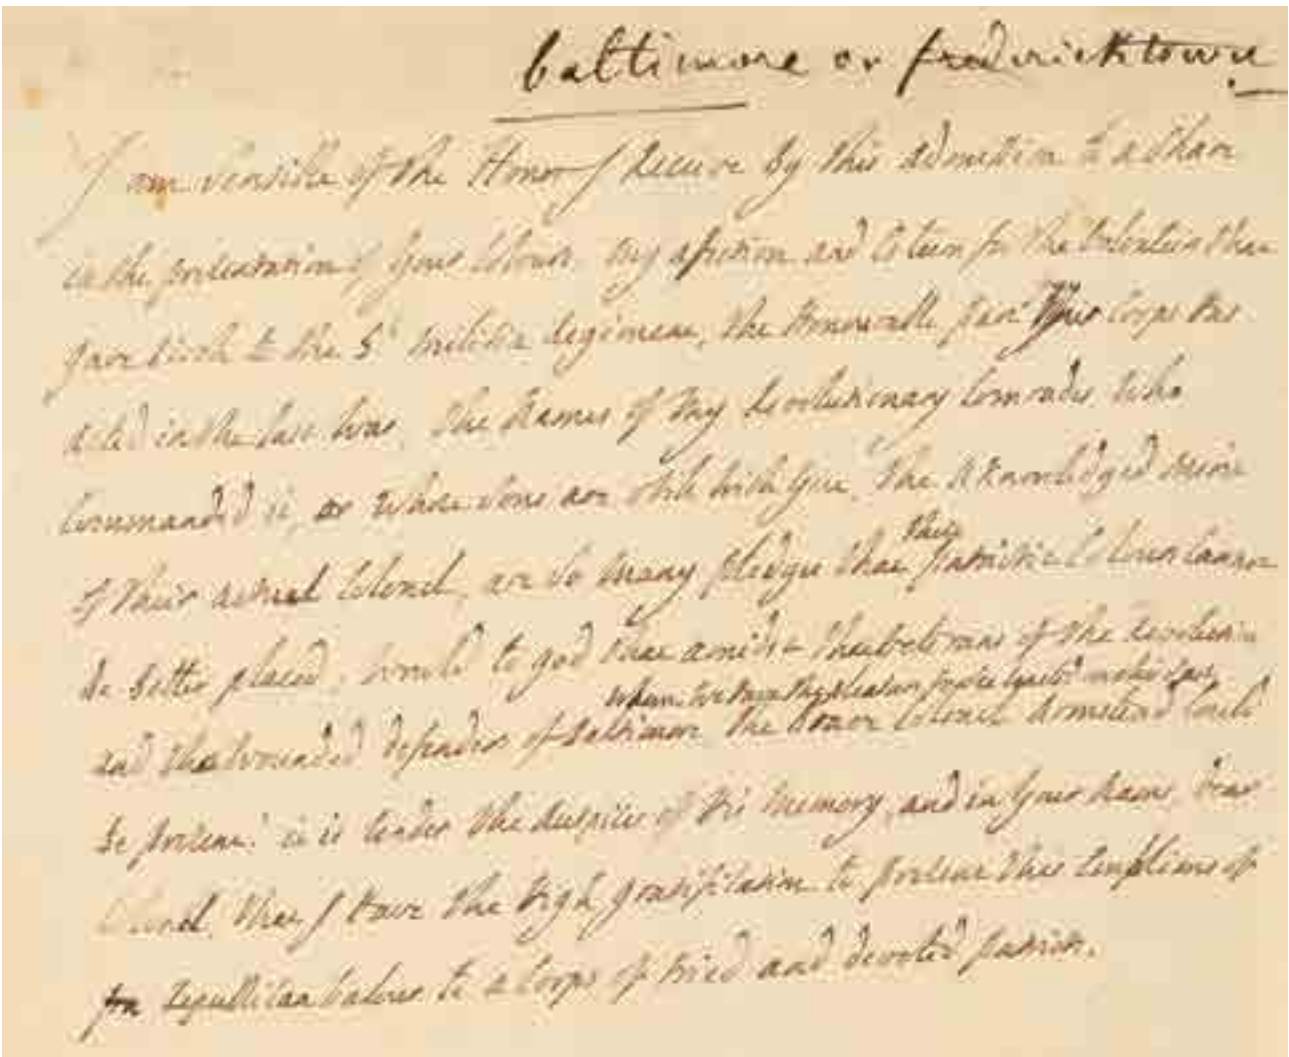 baltimore or fredericktown
I am sensible of the Honor I receive by this admission to a share
in the presentation of Your Colours. My afection and Esteem for the Volunteers that
gave birth to the 5th Militia Regiment, the Honorable part This Corps Has
acted in the last War, the Names of My Revolutionary Comrades Who
Commanded it, or Whose Sons are Still With You, the Aknowledged Merit
of their actual Colonel, are So Many pledges that
their
patriotic Colours Cannot
be better placed. Would to god that amidst the Veterans of the Revolution
Whom We Have the pleasure to
and the Wounded defenders of Baltimore the Honor Colonel Armstead Could
be present! it is Under the Auspices of His Memory, and in Your Name, Dear
Colonel, that I Have the High gratification to present this Emblems of
Republican Valour to a Corps of tried and devoted patriots.